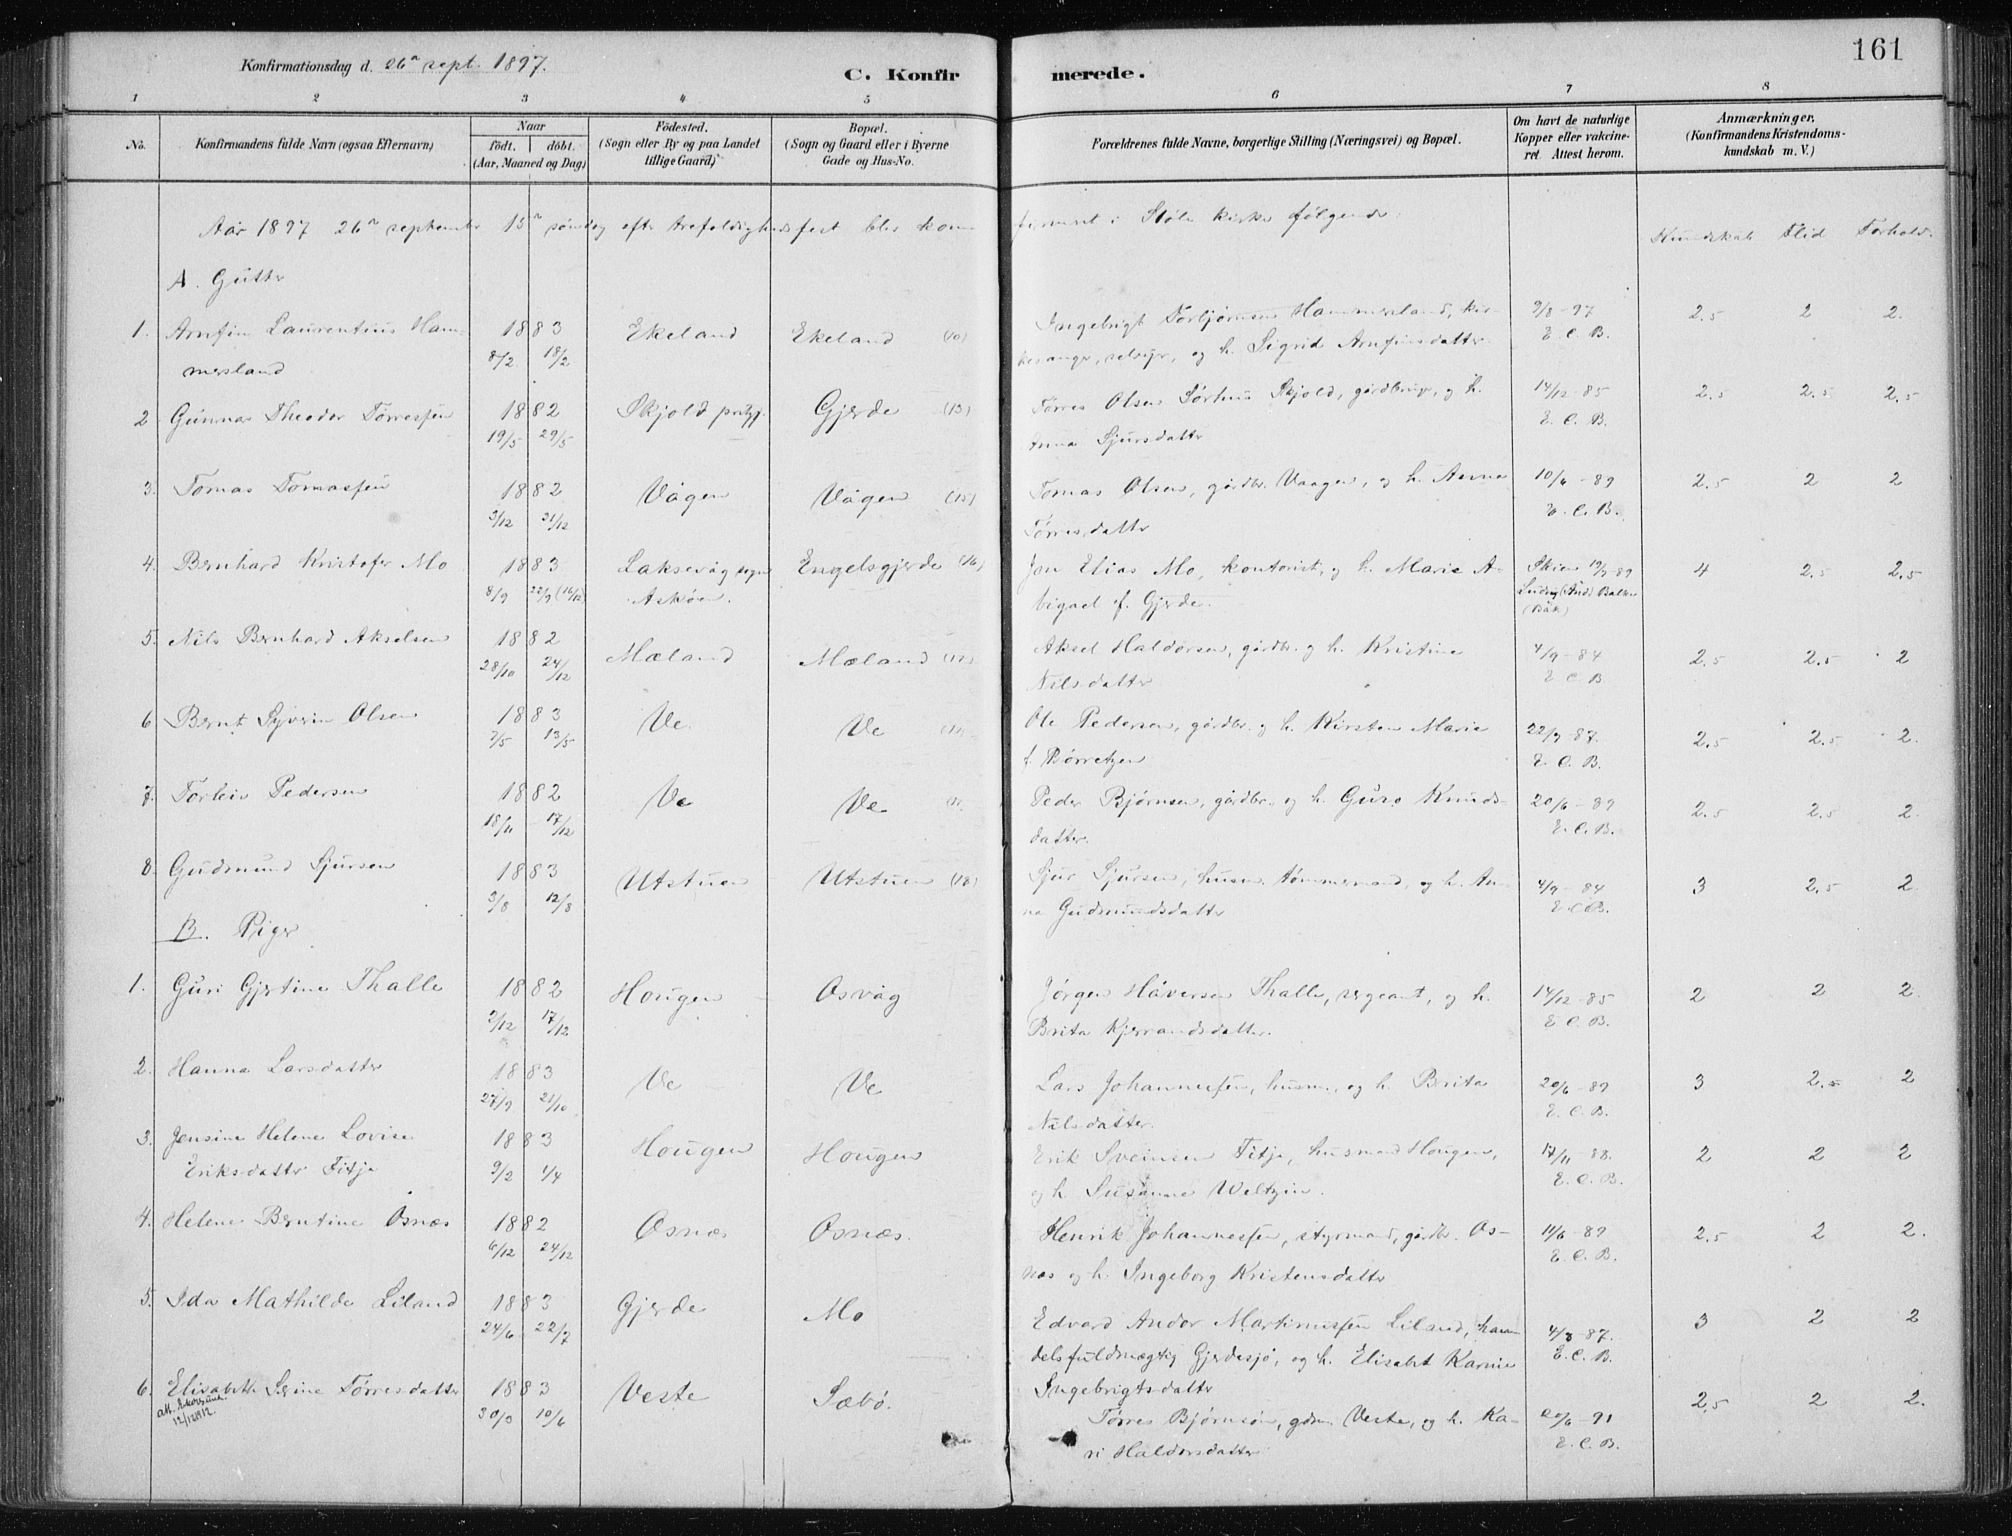 161
Konfirmationsdag d. 26n sept. 1897.
C. Konfirmerede.
1 2 3 4 5 6 7 8
No.
Konfirmandens fulde Navn (ogsaa Efternavn)
Naar
födt. döbt.
(Aar, Maaned og Dag)
Födested.
(Sogn eller By og paa Landet
tillige Gaard)
Bopæl.
(Sogn og Gaard eller i Byerne
Gade og Hus-No.
Forældrenes fulde Navne, borgerlige Stilling (Næringsvei) og Bopæl.
Om havt de naturlige
Kopper eller vakcine-
ret. Attest herom.
Anmærkninger.
(Konfirmandens Kristendoms-
kundskab m. V.)
Aar 1897 26n september 15n søndag efter trefoldighedsfest blev konfirmeret i Støle kirke følgende:
Kundskab Flid Forhold.
A. Gutter
1. Arnfin Laurentius Ham- 1883 Ekeland Ekeland (10) Ingebrigt Torbjørnsen Hammersland, kir- 9/8-97 2.5 2 2.
mersland 8/2 18/2 kesanger, selveier, og h. Sigrid Arnfinsdatter E. C. B.
2 Gunnar Theodor Tørressen 1882 Skjold prstgj. Gjerde (13) Tørres Olsen Sørhus Skjold, gårdbrug., og h. 14/12-85 2.5 2.5 2.5
19/5 29/5 Anna Sjursdatter E. C. B.
3. Tomas Tomassen 1882 Vågen Vågen (15) Tomas Olsen, gårdbr. Vaagen, og h. Anna 10/6-89 2.5 2 2
3/12 31/12 Tørresdatter E. C. B.
4. Bernhard Kristofer Mo 1883 Laksevåg sogn Engelsgjerde (16) Jon Elias Mo, kontorist, og h. Marie A- Skien 19/9 89 4 2.5 2.5
8/9 22/9 (16/12) Askøen. bigael f. Gjerde.
5. Nils Bernhard Akselsen 1882 Mæland Mæland (17) Aksel Haldorsen, gårdbr. og h. Kristine 4/9-84 2.5 2.5 2
28/10 24/12 Nilsdatter E. C. B
6 Bernt Syverin Olsen 1883 Ve Ve Ole Pedersen, gårdbr. og h. Kirsten Marie 22/9 87. 2.5 2.5 2.
7/5 13/5 f. Børretzen E. C. B.
7. Torleiv Pedersen 1882 Ve Ve Peder Bjørnsen, gårdbr. og h. Guro Knuds- 20/6-89 2.5 2.5 2.
18/11 17/12 datter. E. C. B.
8. Gudmund Sjursen 1883 Utstuen Utstuen (18) Sjur Sjursen, husm. tømmermand, og h. An- 4/9-84 3 2.5 2.
3/8 12/8 na Gudmundsdatter E C B.
B. Piger
1. Guri Gjertine Thalle 1882 Hougen Osvåg Jørgen Håversen Thalle, sergeant, og h. 14/12-85 2 2 2.
2/12 17/12 Brita Kjerrandsdatter. E. C. B.
2. Hanna Larsdatter 1883 Ve Ve Lars Johannessen, husm., og h. Brita 20/6-89 3 2.5 2
27/9 21/10 Nilsdatter. E. C. B.
3. Jensine Helene Lovise 1883 Hougen Hougen Erik Sveinsen Fitje, husmand Hougen, 17/11 88. 2 2 2
Eriksdatter Fitje 9/2 1/4 og h. Susanne Weltzin. E. C. B.
4. Helene Berntine Osnæs 1882 Osnæs Osnæs. Henrik Johannessen, styrmand, gårdbr. Os- 11/6-89 2.5 2 2.
6/12 24/12 nes og h. Ingeborg Kristensdatter E. C. B.
5. Ida Mathilde Liland 1883 Gjerde Mo Edvard Andor Martinussen Liland, han- 4/8-87. 3 2 2
24/6 22/7 delsfuldmægtig Gjerdesjø, og h. Elisabet Karine E. C. B.
Ingebrigtsdatter
6. Elisabeth Serine Tørresdatter 1883 Veste Sæbø. Tørres Bjørnsøn, gdm. Veste, og h. Ka- 20/6-91 2.5 2 2.
12/12 1912. 30/3 10/6 ri Haldorsdatter E. C. B.